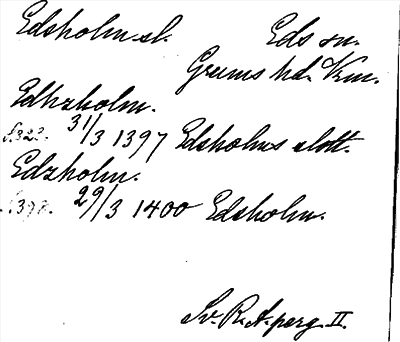 Edsholm sl. Eds sn.
Grums hd. Vrm.
Edhzholm.
s.322. 31/3 1397 Edsholms slott.
Edzholm.
s.398. 29/3 1400 Edsholm.
Sv. R. A. perg. II.